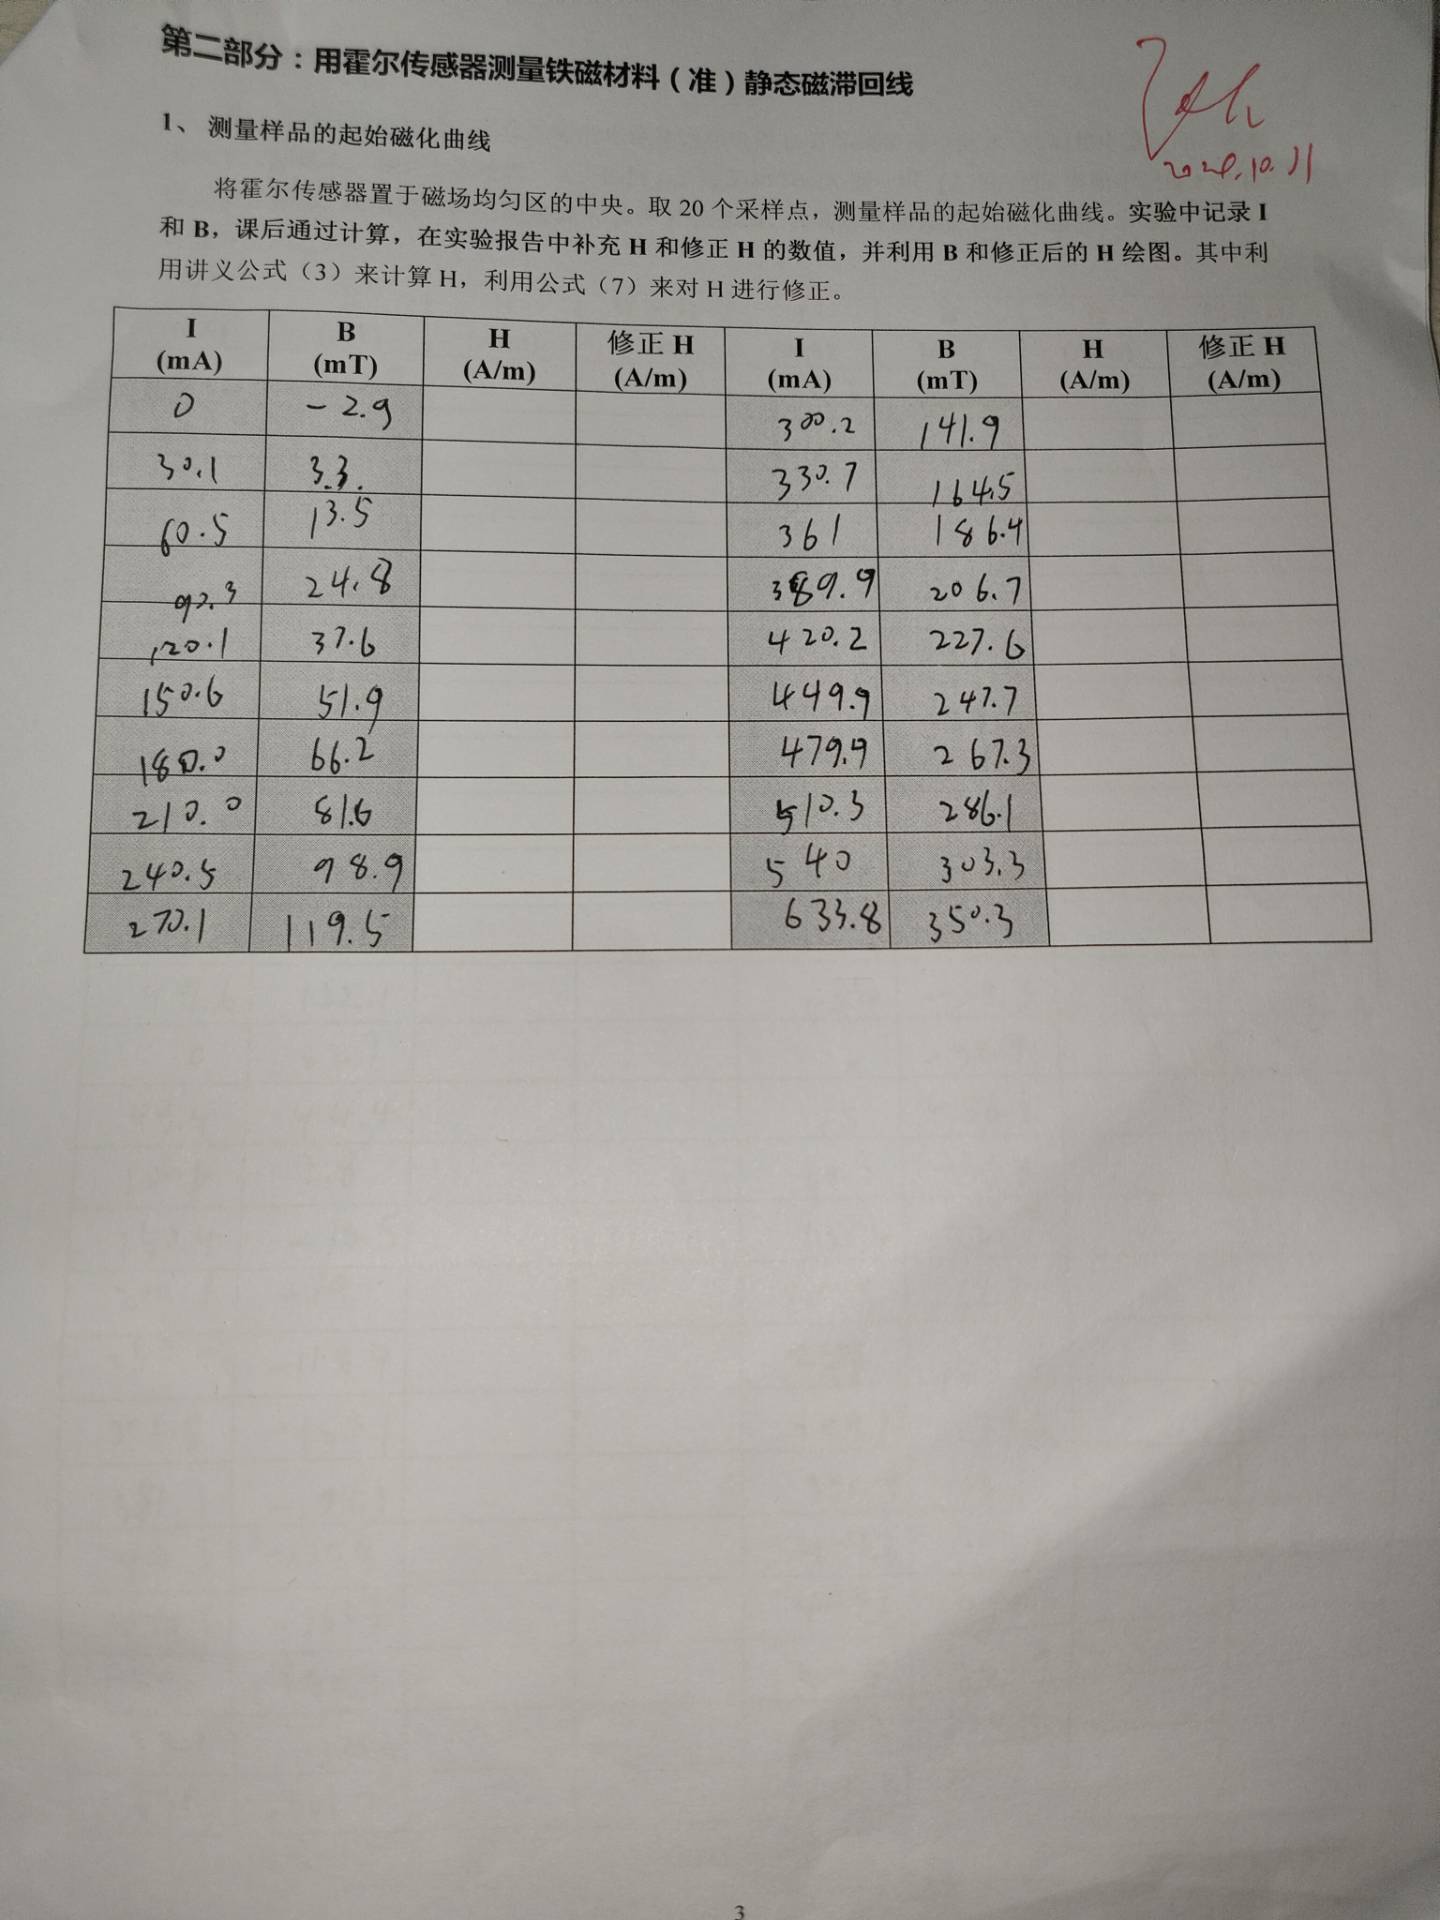 第二部分：用霍尔传感器测量铁磁材料（准）静态磁滞回线
2024.10.11
1、 测量样品的起始磁化曲线
将霍尔传感器置于磁场均匀区的中央。取 20 个采样点，测量样品的起始磁化曲线。实验中记录 I
和 B，课后通过计算，在实验报告中补充 H 和修正 H 的数值，并利用 B 和修正后的 H 绘图。其中利
用讲义公式（3）来计算 H，利用公式（7）来对 H 进行修正。
I (mA) B (mT) H (A/m) 修正 H (A/m) I (mA) B (mT) H (A/m) 修正 H (A/m)
0 -2.9 300.2 141.9
30.1 3.3. 330.7 164.5
60.5 13.5 361 186.4
92.3 24.8 389.9 206.7
120.1 37.6 420.2 227.6
150.6 51.9 449.9 247.7
180.0 66.2 479.9 267.3
210.0 81.6 510.3 286.1
240.5 98.9 540 303.3
270.1 119.5 633.8 350.3
3